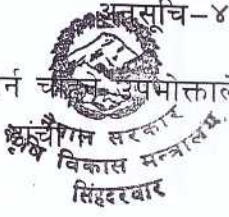 अनुसूचि–४
र्न चाहने उपभोक्ताले
सरकार
विकास मन्त्रालय
सिंहदरबार